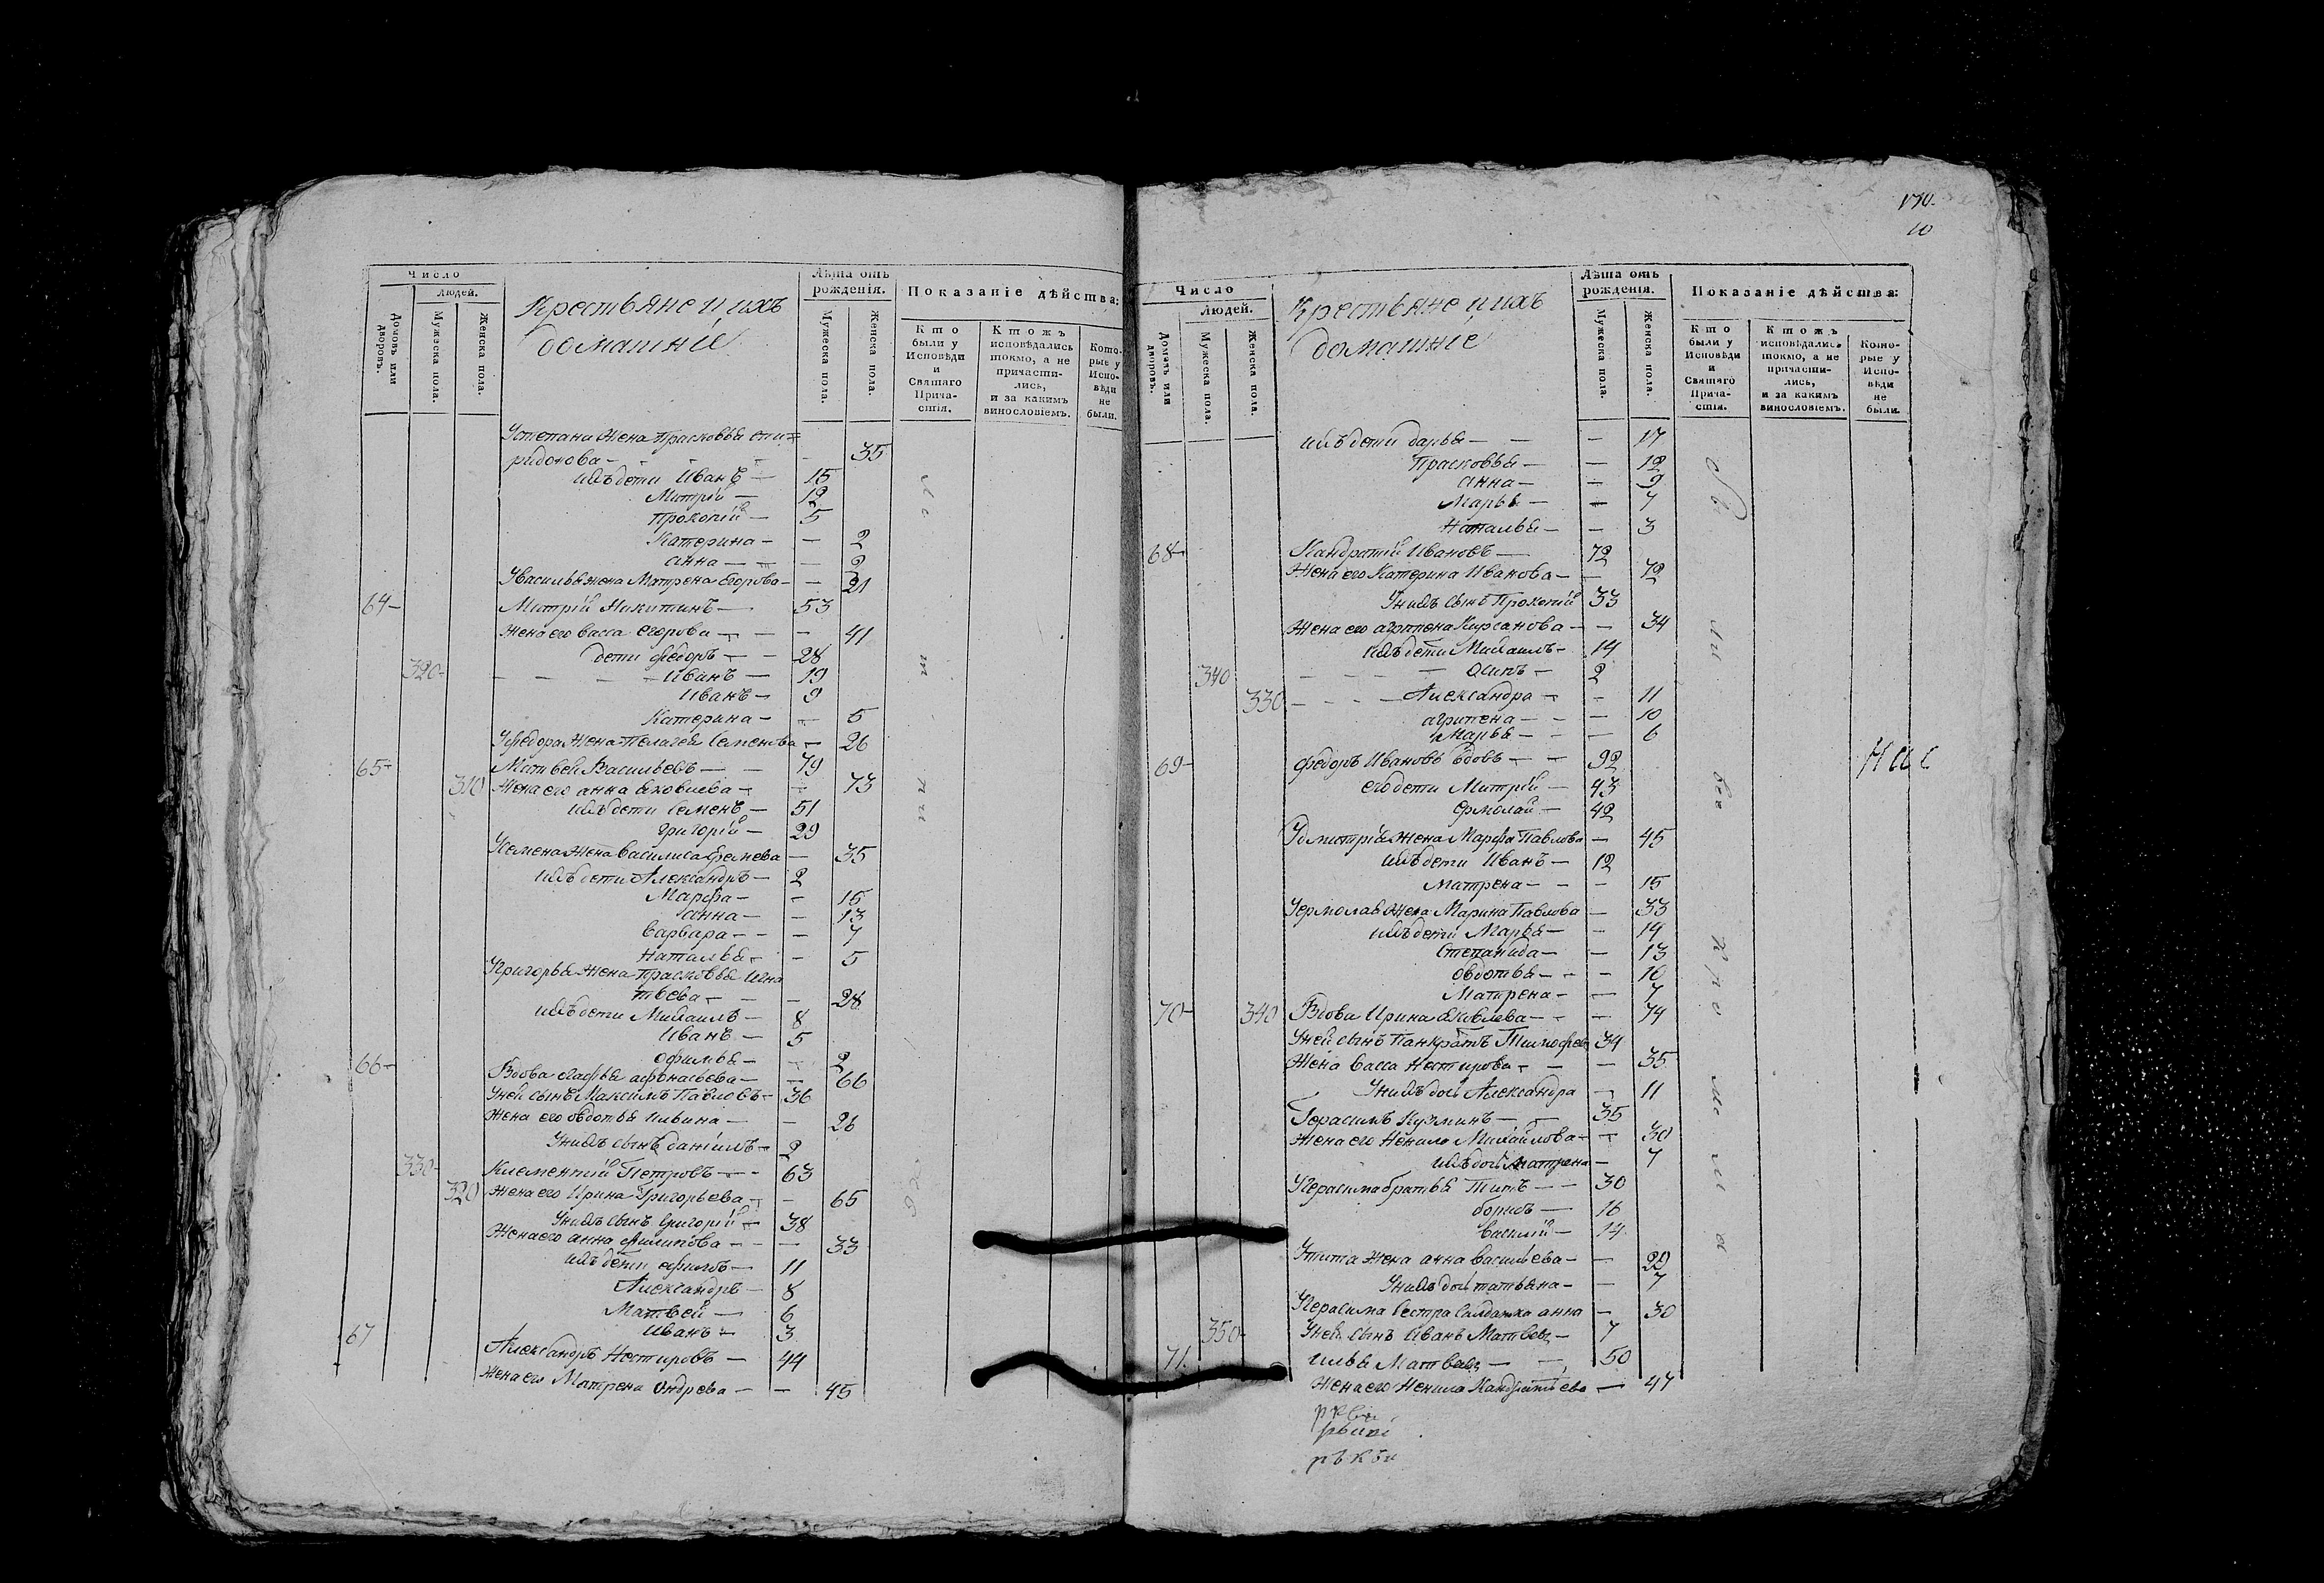 Число
Людей.
Домовъ или дворовъ.
Мужеска пола.
Женска пола.
Крестьяне и ихъ
домашніе
Лѣта отъ рожденія.
Мужеска пола.
Женска пола.
Показаніе дѣйства:
Кто были у Исповѣди и Святаго Причастія.
Ктожъ исповѣдались токмо, а не причастились, и за какимъ винословіемъ.
Которые у Исповѣди не были.
Устепана жена Прасковья спи=
ридонова — — 35
ихъ дети Иванъ — 15
Митрій — 12
Прокопій — 5
Катерина — — 2
анна — — 2
Увасилья жена Матрена Егорова — — 21
64 — Митрій Никитинъ — 53
жена его васса егорова — — 41
дети федоръ — 28
320 — Иванъ — 19
Иванъ — 9
Катерина — — 5
Уфедора жена Пелагея Семенова — 26
65 — Матвей Васильевъ — 79
310 Жена его анна яковлева — — 73
ихъ дети Семенъ — 51
григорій — 29
Усемена жена василиса Еремева — 35
ихъ дети Александръ — 2
Марфа — — 15
анна — — 13
варвара — — 7
Наталья — — 5
Угригорья жена Прасковья Игна
тьева — — 28
ихъ дети Михаилъ — 8
Иванъ — 5
офимья — — 2
66 — Вдова Агафья афонасьева — — 66
Уней сынъ Максимъ Павловъ — 36
жена его овдотья Ильина — — 26
Унихъ сынъ даніилъ — 2
330 — Клементій Петровъ — 63
320 жена его Ирина Григорьева — — 65
Унихъ сынъ Григорій — 38
Жена его анна Филипова — — 33
ихъ дети ефимъ — 11
Александръ — 8
Матвей — 6
Иванъ — 3
67 Александръ Нестировъ — 44
жена его Матрена Андрева — — 45
170.
10
Число
Людей.
Домовъ или дворовъ.
Мужеска пола.
Женска пола.
Крестьяне ихъ
домашніе
Лѣта отъ рожденія.
Мужеска пола.
Женска пола.
Показаніе дѣйства:
Кто были у Исповѣди и Святаго Причастія.
Ктожъ исповѣдались токмо, а не причастились, и за какимъ винословіемъ.
Которые у Исповѣди не были.
ихъ дети дарья — — 17
Прасковья — — 12
анна — — 9
Марья — — 7
Наталья — — 3
68 — Кандратій Ивановъ — 72
Жена его Катерина Иванова — — 72
Унихъ сынъ Прокопій 33
жена его агрипена Кирсанова — — 34
ихъ дети Михаилъ — 14
340 — Осипъ — 2
330 — Александра — — 11
агрипена — — 10
Марья — — 6
69 — федоръ Ивановъ вдовъ — 92
его дети Митрій — 43
Ермолай — 42
Удмитрія жена Марфа Павлова — 45
ихъ дети Иванъ — 12
Матрена — — 15
Уермолая жена Марина Павлова — 33
ихъ дети Марья — — 19
Степанида — — 13
овдотья — — 10
Матрена — — 7
70 — 340 Вдова Ирина яковлева — — 74
Уней сынъ Панкратъ Тимофеев 34
Жена васса Нестирова — — 35
Унихъ дочь Александра — 11
Герасимъ Кузминъ — 35
жена его Ненила Михайлова — — 30
ихъ дочь Матрена — 7
Угерасима братья Титъ — 30
борисъ — 16
василій — 14
Утита жена анна васильева — — 29
Унихъ дочь татьяна — — 7
Угерасима сестра салдатка анна — 30
350 — Уней сынъ Иванъ Матвеев — 7
71. Илья Матвеев — 50
жена его Ненила Кандратьева — 47